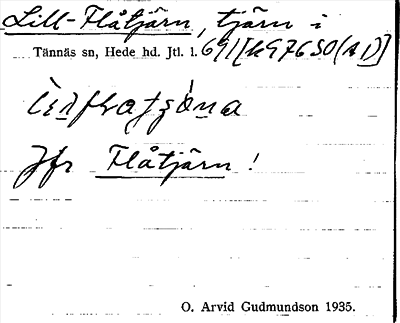 Lill-Flåtjärn, tjärn i
Tännäs sn, Hede hd. Jtl. l. 691[k97630(A1)]
Jfr Flåtjärn!
O. Arvid Gudmundson 1935.